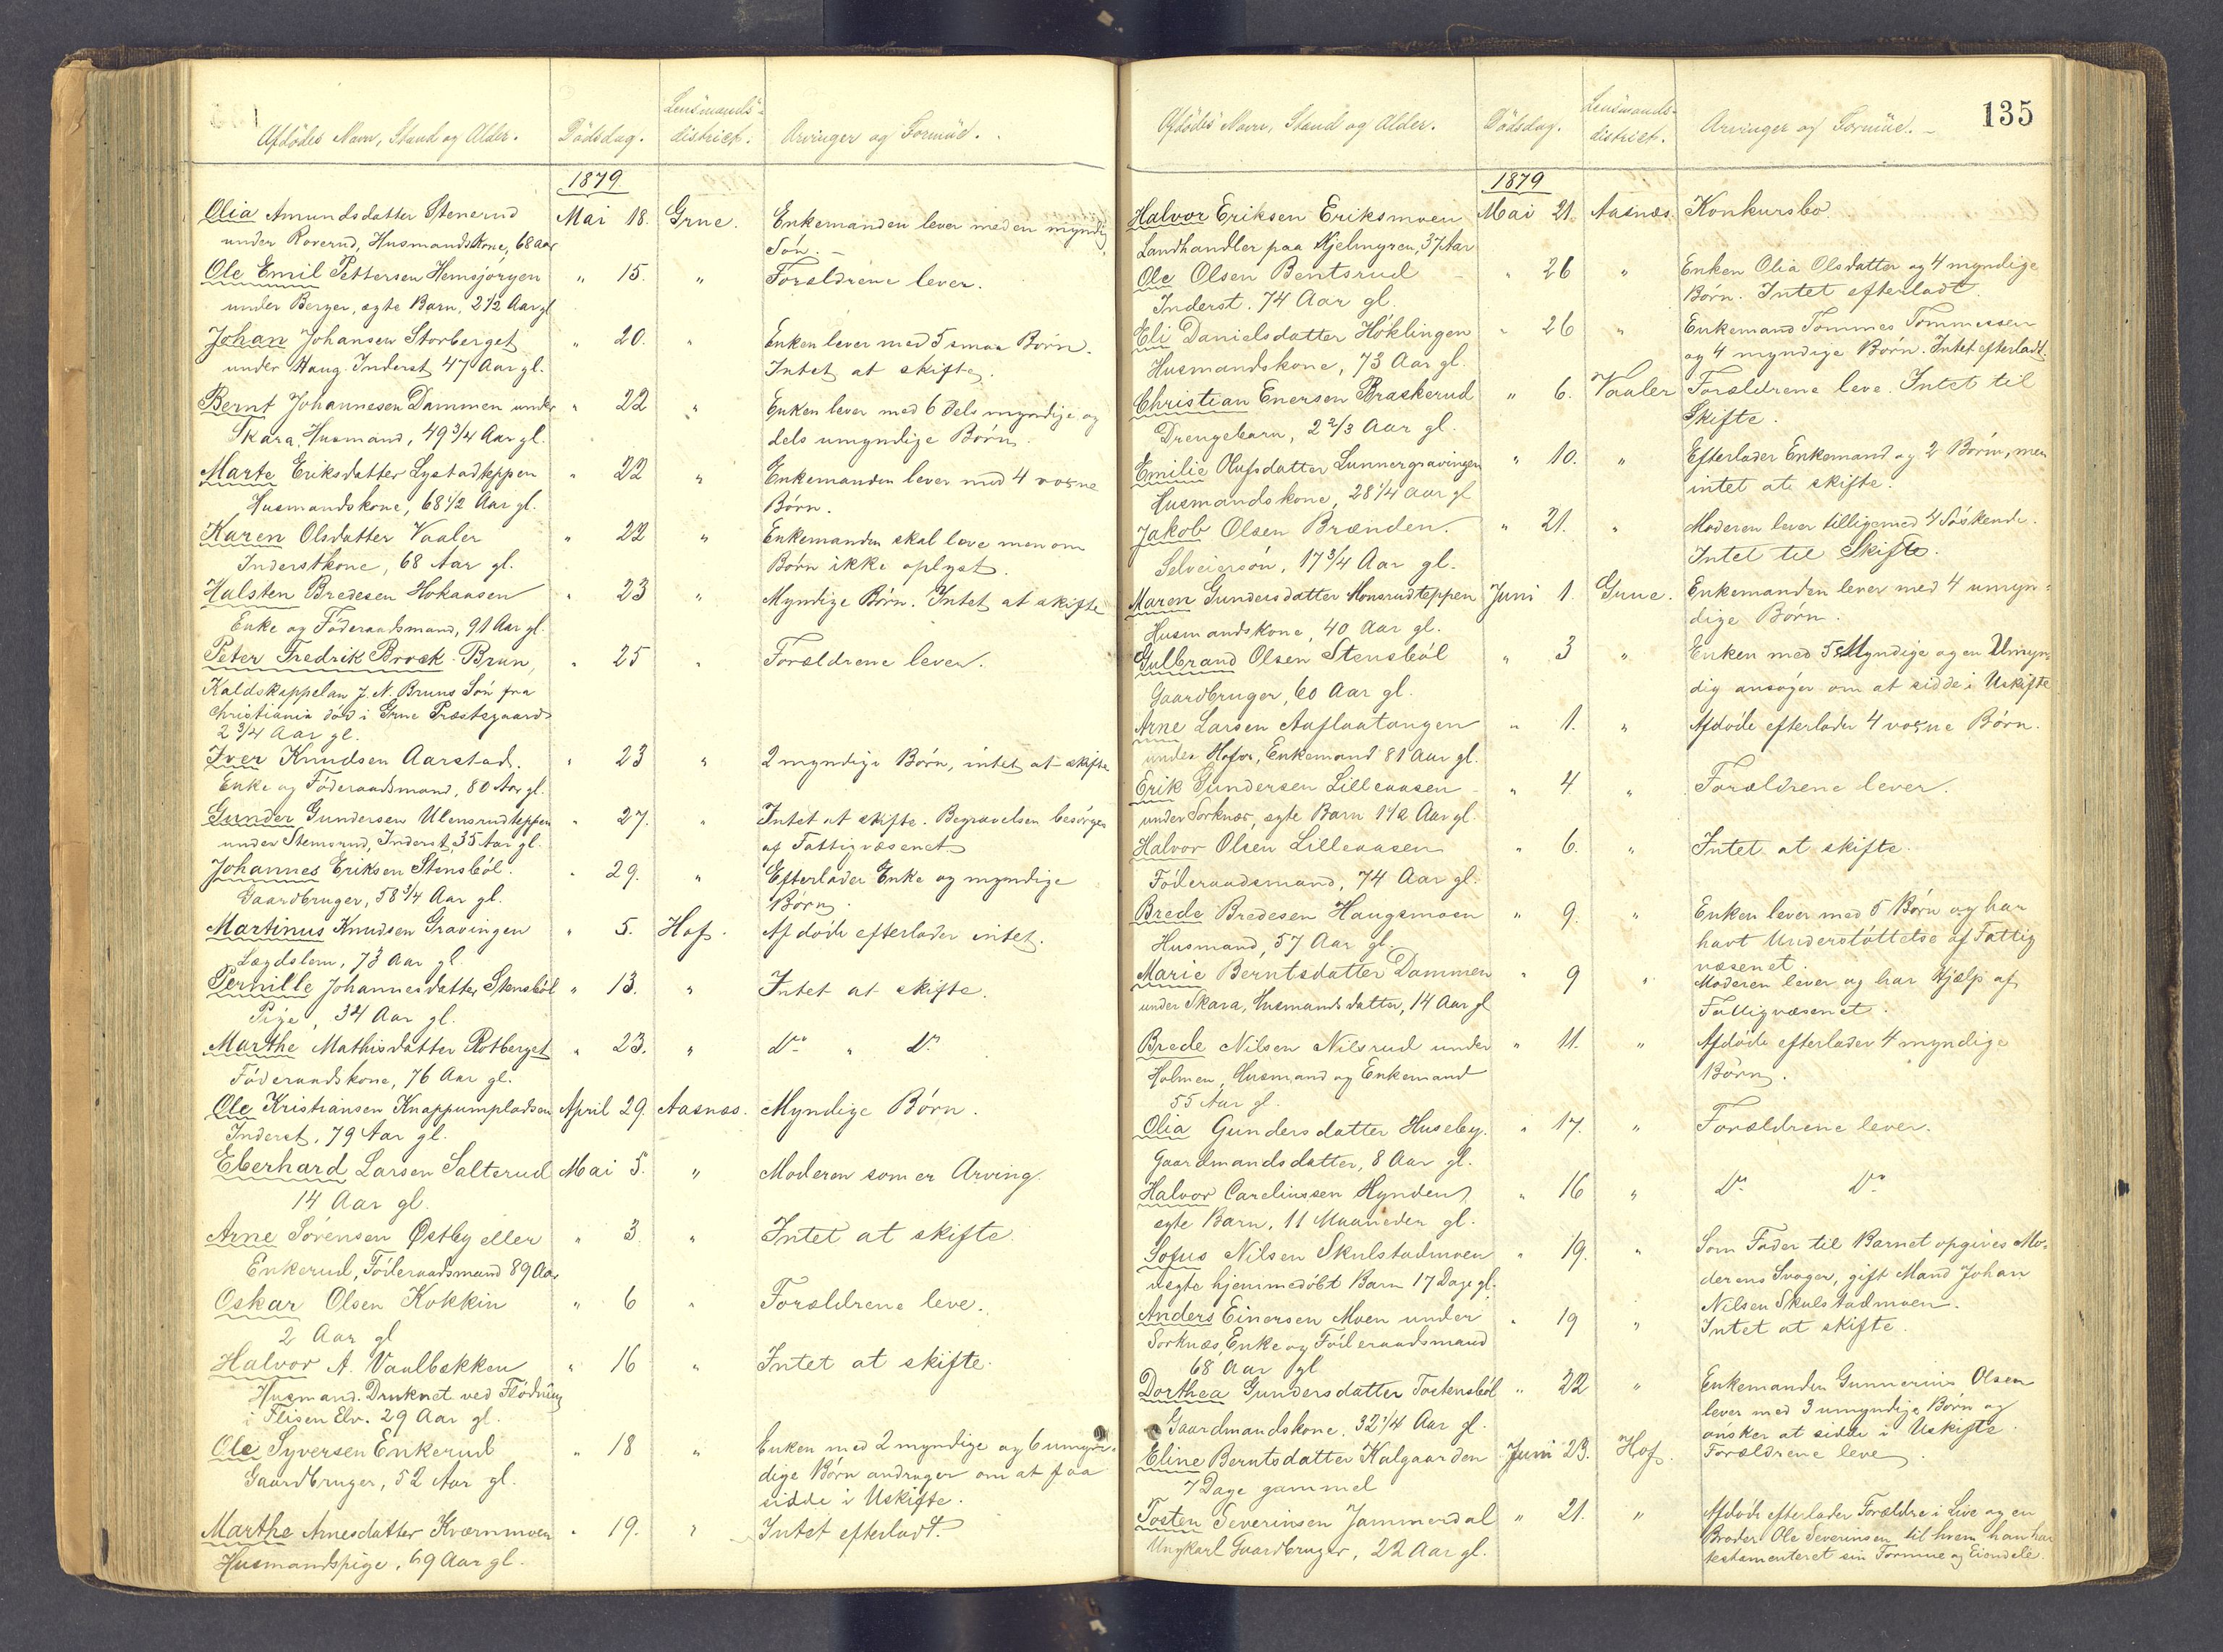 Afdödes Navn, Stand og Alder. Dödsdag. Lensmands-
district. Arvinger og Formüe.
1879
Olia Amundsdatter Stenerud Mai 18. Grue. Enkemanden lever med en myndig
under Roverud, Husmandskone, 68 Aar Sön.
Ole Emil Pettersen Hemsjöryen " 15. " Forældrene lever.
under Berger, ægte Barn, 2 1/2 Aar gl
Johan Johansen Storberget " 20. " Enken lever med 5 smaa Börn.
under Haug. Inderst 47 Aar gl. Intet at skifte.
Bernt Johannesen Dammen under " 22 " Enken lever med 6 dels myndige og
Skara, Husmand, 49 3/4 Aar gl. dels umyndige Börn.
Marte Eriksdatter Lystadteppen " 22 " Enkemanden lever med 4 voxne
Husmandskone, 68 1/2 Aar gl. Börn.
Karen Olsdatter Vaaler " 22 " Enkemanden skal leve men om
Inderstkone, 68 Aar gl. Börn ikke oplyst.
Halsten Bredesen Hokaasen " 23 " Myndige Börn. Intet at skifte
Enke og Föderaadsmand, 91 Aar gl.
Peter Fredrik Brock Brun, " 25 " Forældrene lever.
Kaldskappelan J. N. Bruns Sön fra
Christiania död i Grue Præstegaard
2 3/4 Aar gl.
Iver Knudsen Aarstad. " 23 " 2 myndige Börn, intet at skifte
Enke og Föderaadsmand, 80 Aar gl.
Gunder Gundersen Ulensrudteppen " 27. " Intet at skifte. Begravelsen besörges
under Stemsrud, Inderst, 35 Aar gl. af Fattigvæsenet
Johannes Eriksen Stensböl. " 29. " Efterlader Enke og myndige
Gaardbruger, 58 3/4 Aar gl. Börn.
Martinus Knudsen Gravingen " 5. Hof. Afdöde efterlader intet.
Lægdslem, 73 Aar gl.
Pernille Johannesdatter Stensböl " 13. " Intet at skifte.
Pige, 34 Aar gl.
Marthe Mathisdatter Rotberget " 23. " do " do
Föderaadskone, 76 Aar gl.
Ole Kristiansen Knappumpladsen April 29. Aasnæs. Myndige Börn.
Inderst, 79 Aar gl.
Eberhard Larsen Salterud Mai 5. " Moderen som er Arving.
14 Aar gl.
Arne Sörensen Østby eller " 3. " Intet at skifte.
Enkerud, Föderaadsmand 89 Aar
Oskar Olsen Kokkin " 6 " Forældrene leve.
2 Aar gl
Halvor A. Vaalbækken " 16 " Intet at skifte.
Husmand. Druknet ved Flödning
i Flisen Elv. 29 Aar gl.
Ole Syversen Enkerud " 18 " Enken med 2 myndige og 6 umyn-
Gaardbruger, 52 Aar gl. dige Börn andrager om at faa
sidde i Uskifte.
Marthe Arnesdatter Kværnmoen " 19. " Intet efterladt.
Husmandspige, 69 Aar gl.
135
Afdödes Navn, Stand og Alder. Dödsdag. Lensmands-
district. Arvinger og Formüe.
1879
Halvor Eriksen Eriksmoen Mai 21. Aasnæs. Konkursbo.
Landhandler paa Kjelmyren, 37 Aar
Ole Olsen Bentsrud " 26 " Enken Olia Olsdatter og 4 myndige
Inderst. 74 Aar gl. Börn. Intet efterladt.
Eli Danielsdatter Höklingen " 26 " Enkemand Tommes Tommessen
Husmandskone, 73 Aar gl. og 4 myndige Börn. Intet efterladt.
Christian Enersen Braskerud " 6. Vaaler Forældrene leve. Intet til
Drengebarn, 2 2/3 Aar gl. Skifte.
Emilie Olufsdatter Lunnergravingen " 10. " Efterlader Enkemand og 2 Börn, men
Husmandskone, 28 1/4 Aar gl intet at skifte.
Jakob Olsen Brænden. " 21. " Moderen lever tilligemed 4 Söskende.
Selveiersön, 17 3/4 Aar gl. Intet til Skifte.
Maren Gundersdatter Monsrudteppen Juni 1. Grue. Enkemanden lever med 4 umyn-
Husmandskone, 40 Aar gl. dige Börn.
Gulbrand Olsen Stensböl " 3 " Enken med 5 Myndige og en Umyn-
Gaardbruger, 60 Aar gl. dig ansöger om at sidde i Uskifte
Arne Larsen Aaflaatangen " 1. " Afdöde efterlader 4 voxne Börn.
under Hofor, Enkemand 81 Aar gl.
Erik Gundersen Lilleaasen " 4 " Forældrene lever.
under Sorknæs, ægte Barn 1 1/2 Aar gl.
Halvor Olsen Lilleaasen " 6. " Intet at skifte.
Föderaadsmand, 74 Aar gl.
Brede Bredesen Haugsmoen " 9. " Enken lever med 5 Börn og har
Husmand, 57 Aar gl. havt Understöttelse af Fattig
væsenet.
Marie Berntsdatter Dammen " 9 " Moderen lever og har Hjælp af
under Skara, Husmandsdatter, 14 Aar gl Fattigvæsenet.
Brede Nilsen Nilsrud under " 11. " Afdöde efterlader 4 myndige
Holmen, Husmand og Enkemand Börn.
55 Aar gl.
Olia Gundersdatter Huseby. " 17. " Forældrene lever.
Gaardmandsdatter, 8 Aar gl.
Halvor Carelinssen Hynden " 16 " do do
ægte Barn, 11 Maaneder gl.
Sofus Nilsen Skulstadmoen " 19. " Som Fader til Barnet opgives Mo-
uægte hjemmedöbt Barn 17 Dage gl. derens Svoger, gift Mand Johan
Nilsen Skulstadmoen.
Anders Einersen Moen under " 19 " Intet at skifte.
Sorknæs, Enke og Föderaadsmand
68 Aar gl
Dorthea Gundersdatter Tostensböl " 22 " Enkemanden Gunnerius Olsen
Gaardmandskone. 32 1/4 Aar gl. lever med 3 umyndige Börn og
önsker at sidde i Uskifte.
Eline Berntsdatter Kalgaarden Juni 23. Hof. Forældrene leve.
7 Dage gammel
Tosten Severinsen Jammerdal " 21. " Afdöde efterlader Forældre i Live og en
Ungkarl Gaardbruger, 22 Aar gl. Broder Ole Severinsen til hvem han har
testamenteret sin Formue og Eiendele.